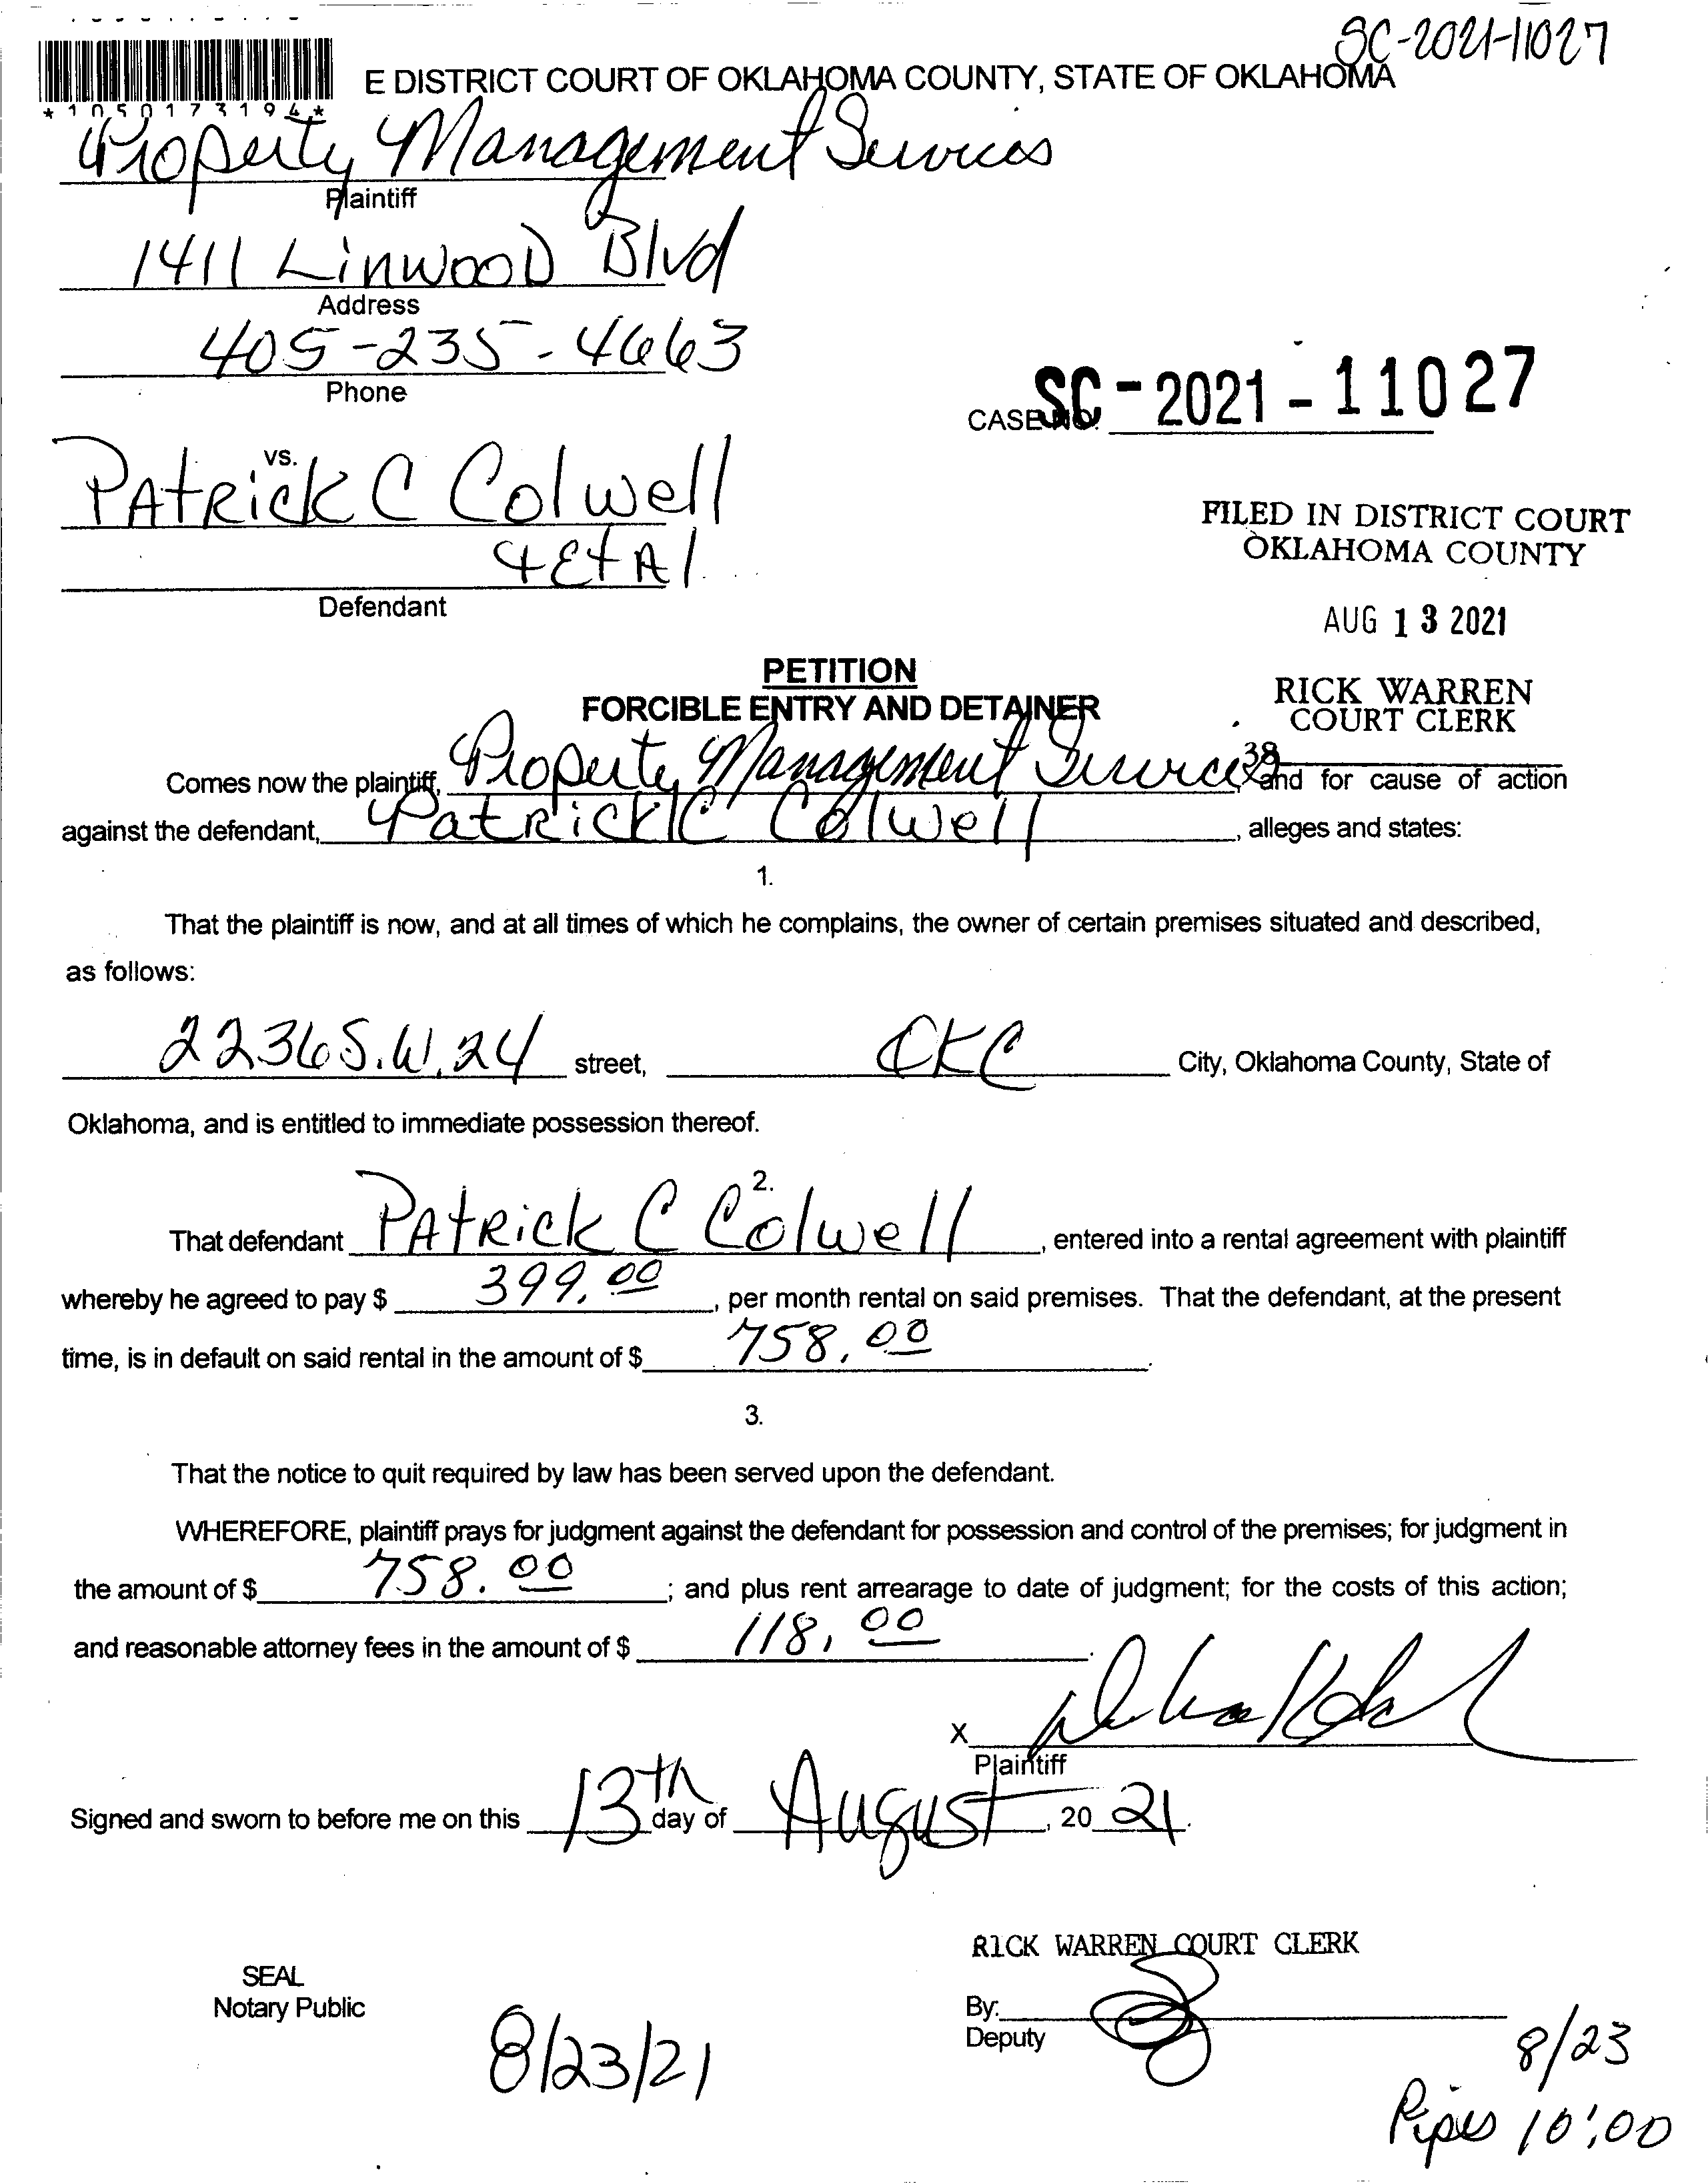 SC-2021-11027
E DISTRICT COURT OF OKLAHOMA COUNTY, STATE OF OKLAHOMA
*1050173194*
Property Management Services
Plaintiff
1411 LinwooD Blvd
Address
405-235-4663
Phone
CASE NO. SC-2021-11027
vs.
PAtRick C Colwell
& Et Al
Defendant
FILED IN DISTRICT COURT
OKLAHOMA COUNTY
AUG 13 2021
RICK WARREN
COURT CLERK
38
PETITION
FORCIBLE ENTRY AND DETAINER
Comes now the plaintiff, Property Management Services, and for cause of action
against the defendant, Patrick C Colwell, alleges and states:
1.
That the plaintiff is now, and at all times of which he complains, the owner of certain premises situated and described,
as follows:
2236 S.W. 24 street, OKC City, Oklahoma County, State of
Oklahoma, and is entitled to immediate possession thereof.
2.
That defendant PAtRick C Colwell, entered into a rental agreement with plaintiff
whereby he agreed to pay $ 399.00, per month rental on said premises. That the defendant, at the present
time, is in default on said rental in the amount of $ 758.00.
3.
That the notice to quit required by law has been served upon the defendant.
WHEREFORE, plaintiff prays for judgment against the defendant for possession and control of the premises; for judgment in
the amount of $ 758.00; and plus rent arrearage to date of judgment; for the costs of this action;
and reasonable attorney fees in the amount of $ 118.00.
X
Plaintiff
Signed and sworn to before me on this 13th day of August, 20 21.
RICK WARREN COURT CLERK
SEAL
Notary Public
By:
Deputy
8/23/21
8/23
Pipes 10:00